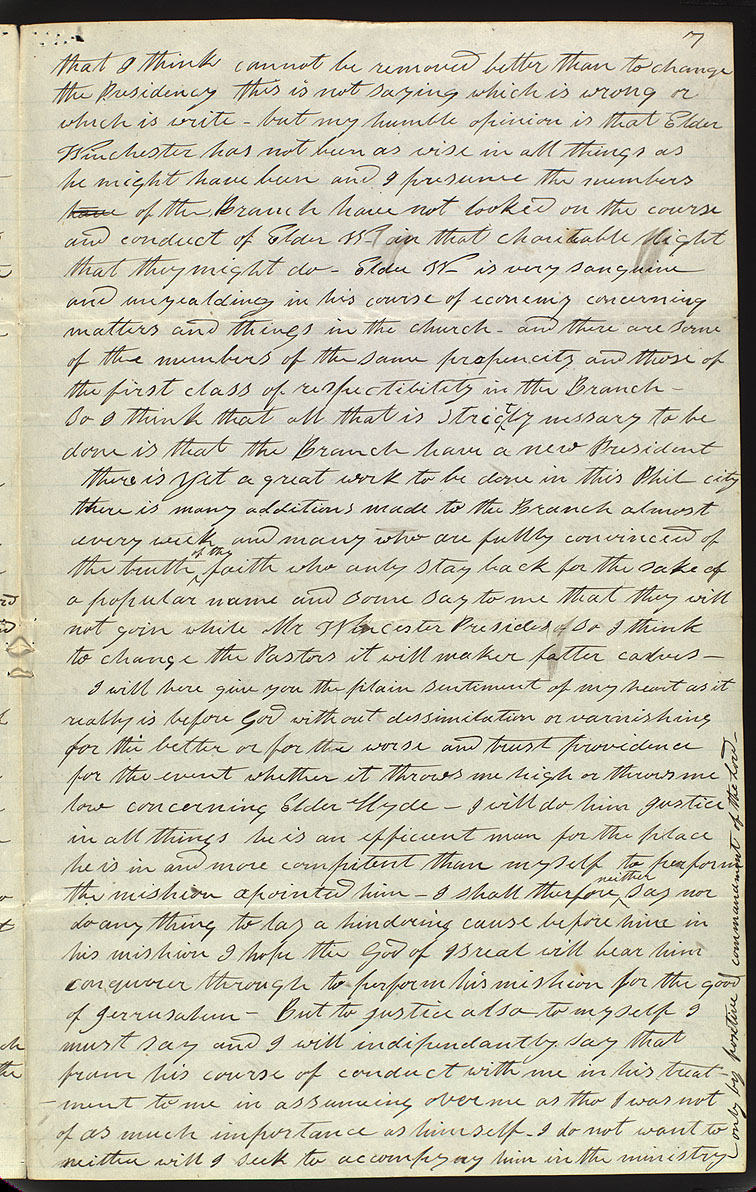 7
that I think cannot be removed better than to change
the Presidency this is not saying which is wrong or
which is write - but my humble opinion is that Elder
Winchester has not been as wise in all things as
he might have been and I presume the members
have of the Branch have not looked on the course
and conduct of Elder W- in that charitable light
that they might do - Elder W- is very sanguine
and unyealding in his course of economy concerning
matters and things in the church - and there are some
of the members of the same propencity and those of
the first class of respectibility in the Branch -
So I think that all that is strictly nessary to be
done is that the Branch have a new President
there is yet a great work to be done in this Phil city
there is many additions made to the Branch almost
every week and many who are fully convinced of
the truth of the faith who only stay back for the sake of
a popular name and some say to me that they will
not goin while Mr Wincester Presides So I think
to change the Pastors it will maker fatter calves -
I will here give you the plain sentiment of my heart as it
really is before God without dessimilation or varnishing
for the better or for the worse and trust providence
for the event whether it throws me high or throws me
low concerning Elder Hyde - I will do him justice
in all things he is an efficient man for the place
he is in and more compitent than myself to perform
the mishion apointed him - I shall therfore neither say nor
do any thing to lay a hindering cause before him in
his mishion I hope the God of Isreal will bear him
conquorer through to perform his mishion for the good
of Jerrusalem - But to justice also to myself I
must say and I will indipendantly say that
from his course of conduct with me in his treat-
ment to me in assumeing over me as tho I was not
of as much importance as himself - I do not want to
neither will I seek to accompany him in the ministry
only by positive commandment of the Lord -